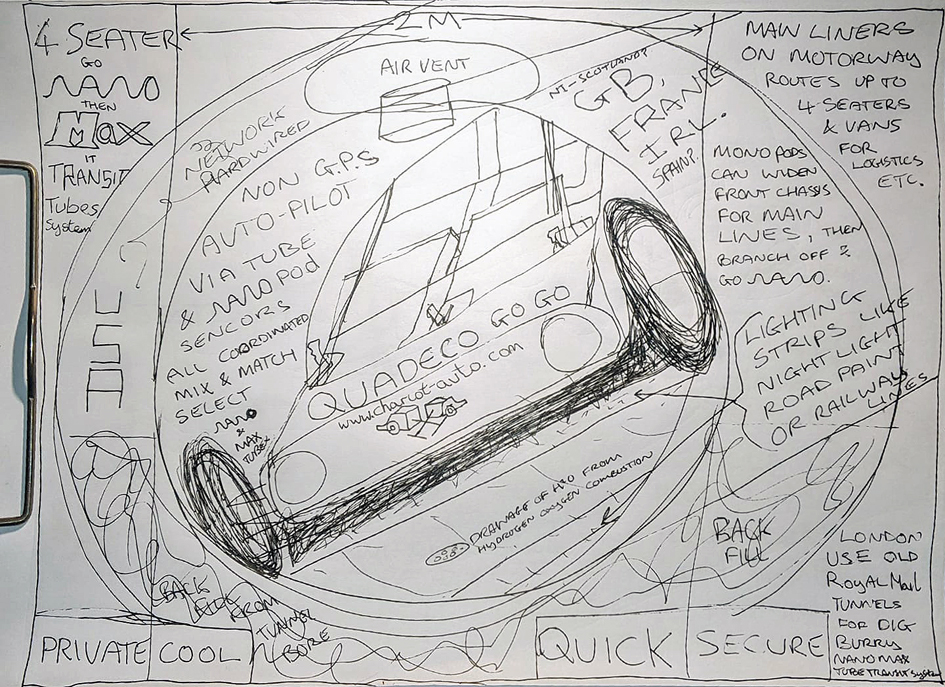 4 SEATER
GO
NANO
THEN
MAX
IT
TRANSIT
Tubes
System
2M
AIR VENT
NETWORK
HARDWIRED
NON G.P.S
AUTO-PILOT
VIA TUBE
& NANO POD
SENCORS
ALL COORDINATED
MIX & MATCH
SELECT
NANO
&
MAX
TUBES
USA
NI-SCOTLAND?
GB,
FRANCE
IRL.
SPAIN?
MAIN LINERS
ON MOTORWAY
ROUTES UP TO
4 SEATERS
& VANS
FOR
LOGISTICS
ETC.
MONO PODS
CAN WIDEN
FRONT CHASSIS
FOR MAIN
LINES, THEN
BRANCH OFF &
GO NANO.
QUADECO GO GO
www.chariot-auto.com
LIGHTING
STRIPS LIKE
NIGHT LIGHT
ROAD PAINT
OR RAILWAY
LINES
DRAINAGE OF H2O FROM
HYDROGEN OXYGEN COMBUSTION
BACK
FILL
BACK
FILL
FROM
TUNNEL
BORE
LONDON
USE OLD
Royal Mail
TUNNELS
FOR DIG
BURRY
NANO MAX
TUBE TRANSIT System
PRIVATE COOL QUICK SECURE